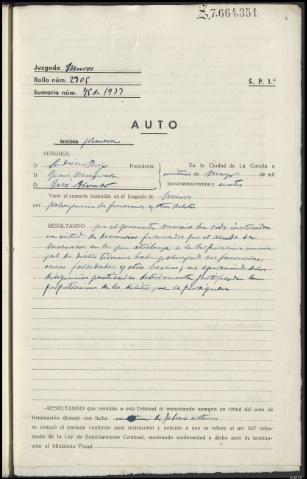 £7.664.351
Juzgado Muros
Rollo núm. 2305
Sumario núm. de 1933
S. P. 1.ª
AUTO
Sección primera
SEÑORES:
D. Presidente
D.
D.
En la Ciudad de La Coruña a
de Mayo de mil
novecientos treinta y cuatro
Visto el sumario instruido en el Juzgado de Muros
por prolongación de funciones y otros delitos
RESULTANDO que el presente sumario ha sido instruido
en virtud de denuncias formuladas por el alcalde de
en las que atribuye a la
pal de dicho término haber prolongado sus funciones,
varias falsedades y otros hechos; no apareciendo de las
diligencias practicadas debidamente justificada la
perpetración de los delitos que se persiguen
-RESULTANDO que remitido a este Tribunal el mencionado sumario en virtud del auto de
terminación dictado con fecha de Febrero último
se evacuó el traslado conferido para instrucción y petición a que se refiere el art. 627 refor-
mado de la Ley de Enjuiciamiento Criminal, mostrando conformidad a dicho auto de termina-
ción el Ministerio Fiscal